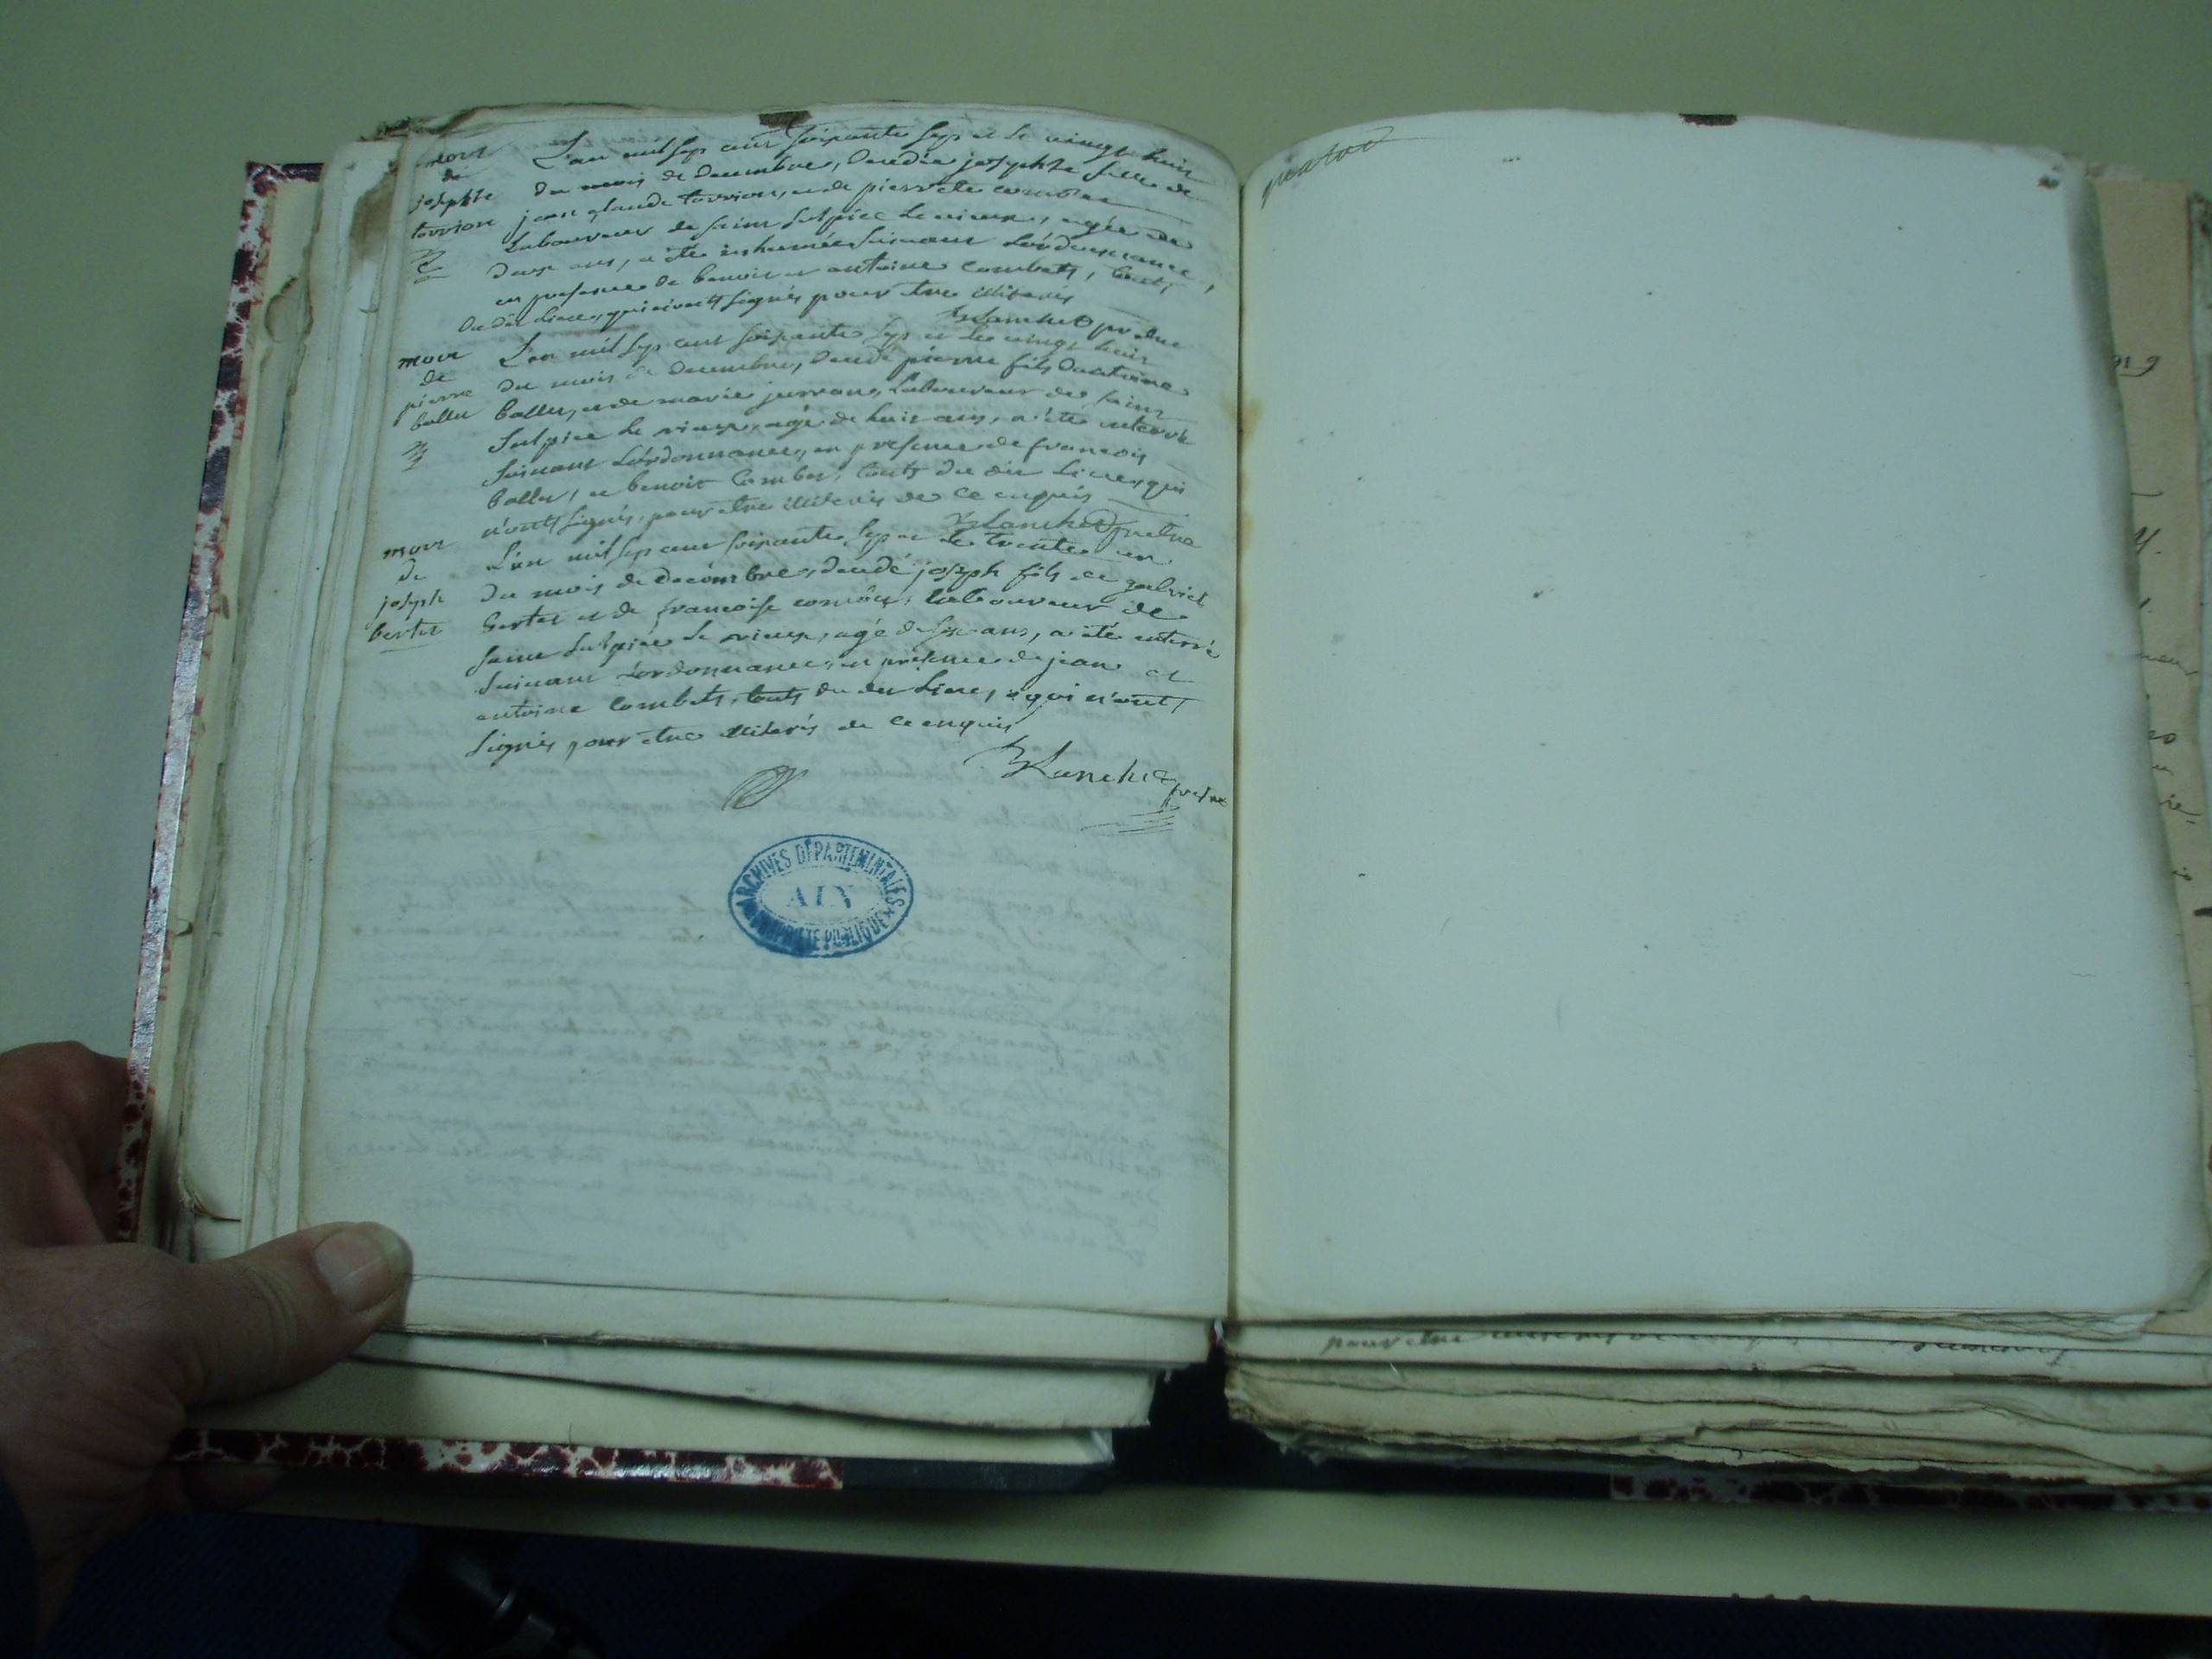 mort
de
josephte
tovvion
L'an mil sep cent soixante sep et le vingt huit
du mois de decembre, decedée josephte fille de
jean claude tovvion, et de pierrette combet
laboureur de saint sulpice le vieux, agée de
douze ans, a été inhumée suivant l'órdonnance,
en presence de benoit et antoine combets, touts
du dit lieu, qui n'ont signés pour être illiterés
Blanchet ptre
mort
de
pierre
ballet
L'an mil sep cent soixante sep et le vingt huit
du mois de decembre, decedé pierre fils d'antoine
ballet, et de marie, laboureur de saint
sulpice le vieux, agé de huit ans, a été enterré
suivant l'órdonnance, en presence de francois
ballet, et benoit combet, touts du dit lieu, qui
n'ont signés, pour être illiterés de ce enquis
Blanchet pretre
mort
de
joseph
bertet
L'an mil sep cent soixante sep et le trente un
du mois de decembre, decedé joseph fils de gabriel
bertet et de francoise, laboureur de
saint sulpice le vieux, agé de six ans, a été enterré
suivant l'ordonnance, en presence de jean et
antoine combets, touts du dit lieu, et qui n'ont
signés pour être illiterés de ce enquis
Blanchet pretre
ARCHIVES DÉPARTEMENTALES
AIN
PROPRIÉTÉ PUBLIQUE
pour etre